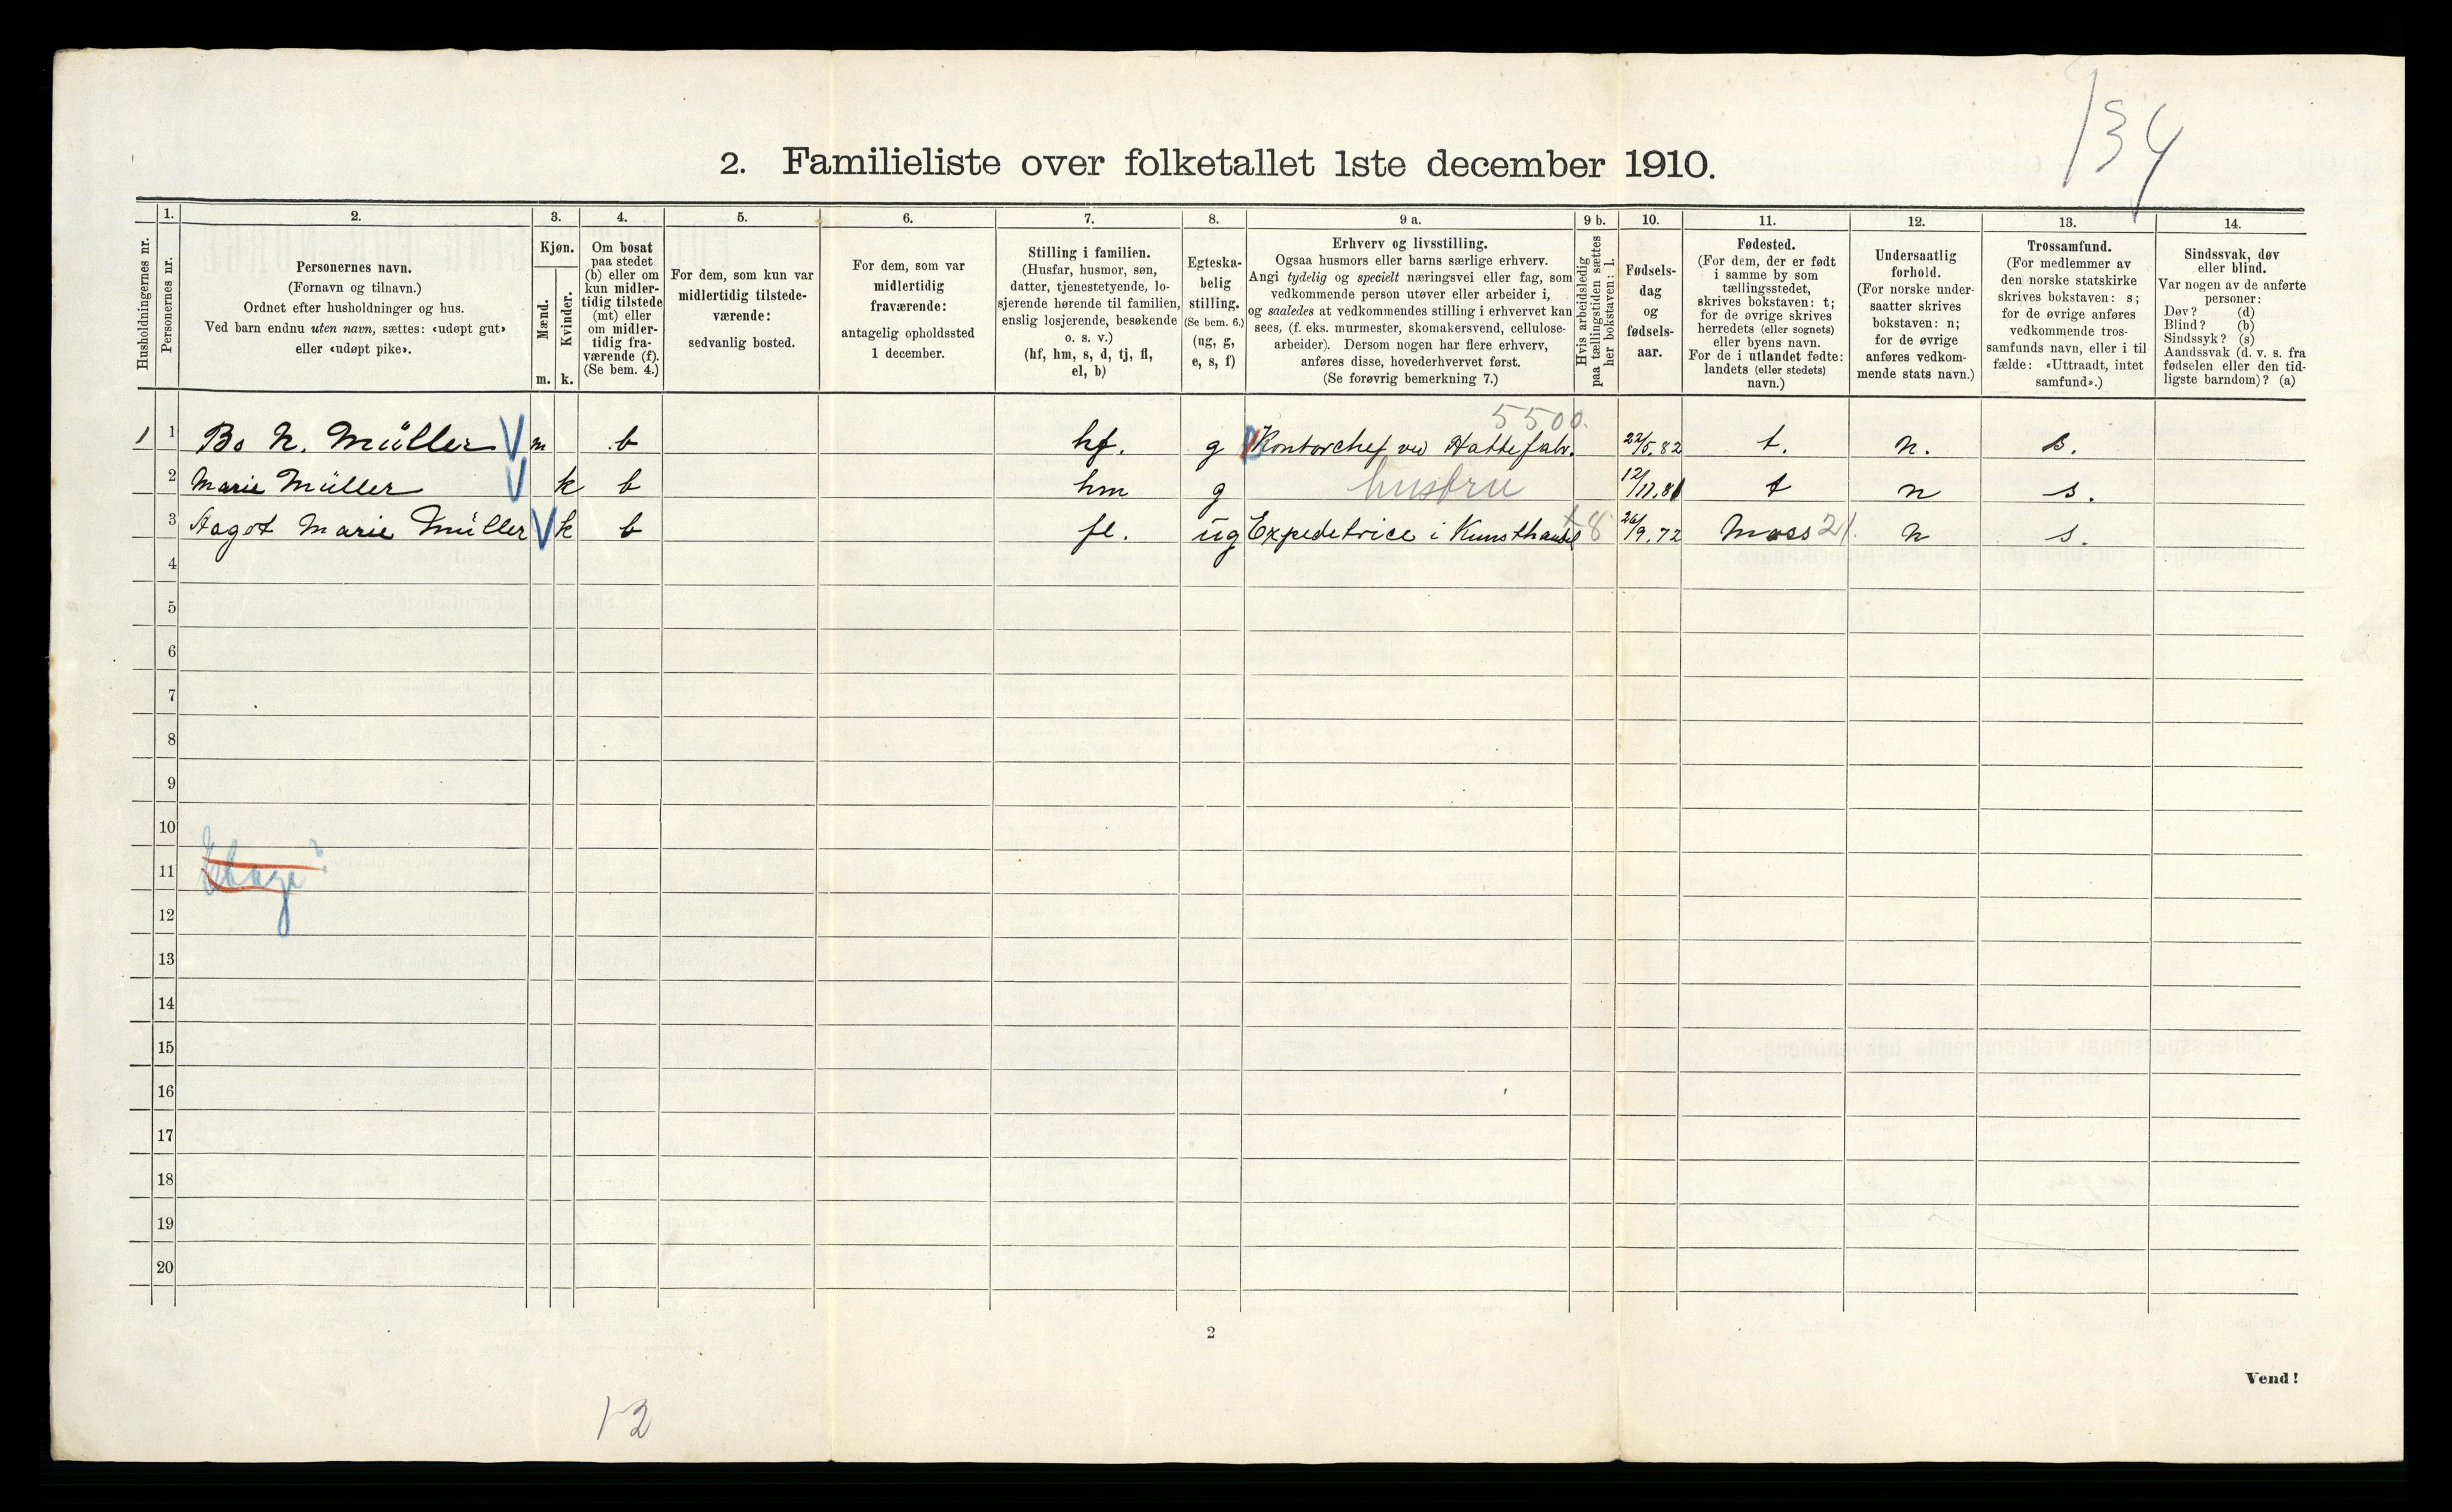 134
2. Familieliste over folketallet 1ste december 1910.
Husholdningernes nr.
1.
Personernes nr.
2.
Personernes navn.
(Fornavn og tilnavn.)
Ordnet efter husholdninger og hus.
Ved barn endnu uten navn, sættes: «udøpt gut»
eller «udøpt pike».
3.
Kjøn.
Mænd.
Kvinder.
m. k.
4.
Om bosat
paa stedet
(b) eller om
kun midler-
tidig tilstede
(mt) eller
om midler-
tidig fra-
værende (f).
(Se bem. 4.)
5.
For dem, som kun var
midlertidig tilstede-
værende:
sedvanlig bosted.
6.
For dem, som var
midlertidig
fraværende:
antagelig opholdssted
1 december.
7.
Stilling i familien.
(Husfar, husmor, søn,
datter, tjenestetyende, lo-
sjerende hørende til familien,
enslig losjerende, besøkende
o. s. v.)
(hf, hm, s, d, tj, fl,
el, b)
8.
Egteska-
belig
stilling.
(Se bem. 6.)
(ug, g,
e, s, f)
9 a.
Erhverv og livsstilling.
Ogsaa husmors eller barns særlige erhverv.
Angi tydelig og specielt næringsvei eller fag, som
vedkommende person utøver eller arbeider i,
og saaledes at vedkommendes stilling i erhvervet kan
sees, (f. eks. murmester, skomakersvend, cellulose-
arbeider). Dersom nogen har flere erhverv,
anføres disse, hovederhvervet først.
(Se forøvrig bemerkning 7.)
9 b.
Hvis arbeidsledig
paa tællingstiden sættes
her bokstaven: l.
10.
Fødsels-
dag
og
fødsels-
aar.
11.
Fødested.
(For dem, der er født
i samme by som
tællingsstedet,
skrives bokstaven: t;
for de øvrige skrives
herredets (eller sognets)
eller byens navn.
For de i utlandet fødte:
landets (eller stedets)
navn.)
12.
Undersaatlig
forhold.
(For norske under-
saatter skrives
bokstaven: n;
for de øvrige
anføres vedkom-
mende stats navn.)
13.
Trossamfund.
(For medlemmer av
den norske statskirke
skrives bokstaven: s;
for de øvrige anføres
vedkommende tros-
samfunds navn, eller i til-
fælde: «Uttraadt, intet
samfund».)
14.
Sindssvak, døv
eller blind.
Var nogen av de anførte
personer:
Døv? (d)
Blind? (b)
Sindssyk? (s)
Aandssvak (d. v. s. fra
fødselen eller den tid-
ligste barndom)? (a)
5500.
1 1 Bo N. Müller m b hf. g Kontorchef ved Hattefabr. 22/5.82 t. n. s.
2 Marie Müller k b hm g hustru 12/11.81 t n s.
3 Aagot Marie Müller k b fl. ug Expeditrice i Kunsthandel 8 26/9.72 Moss 21. n s.
4
5
6
7
8
9
10
11 Etage?
12
13
14
15
16
17
18
19
20
2
Vend!
1-2